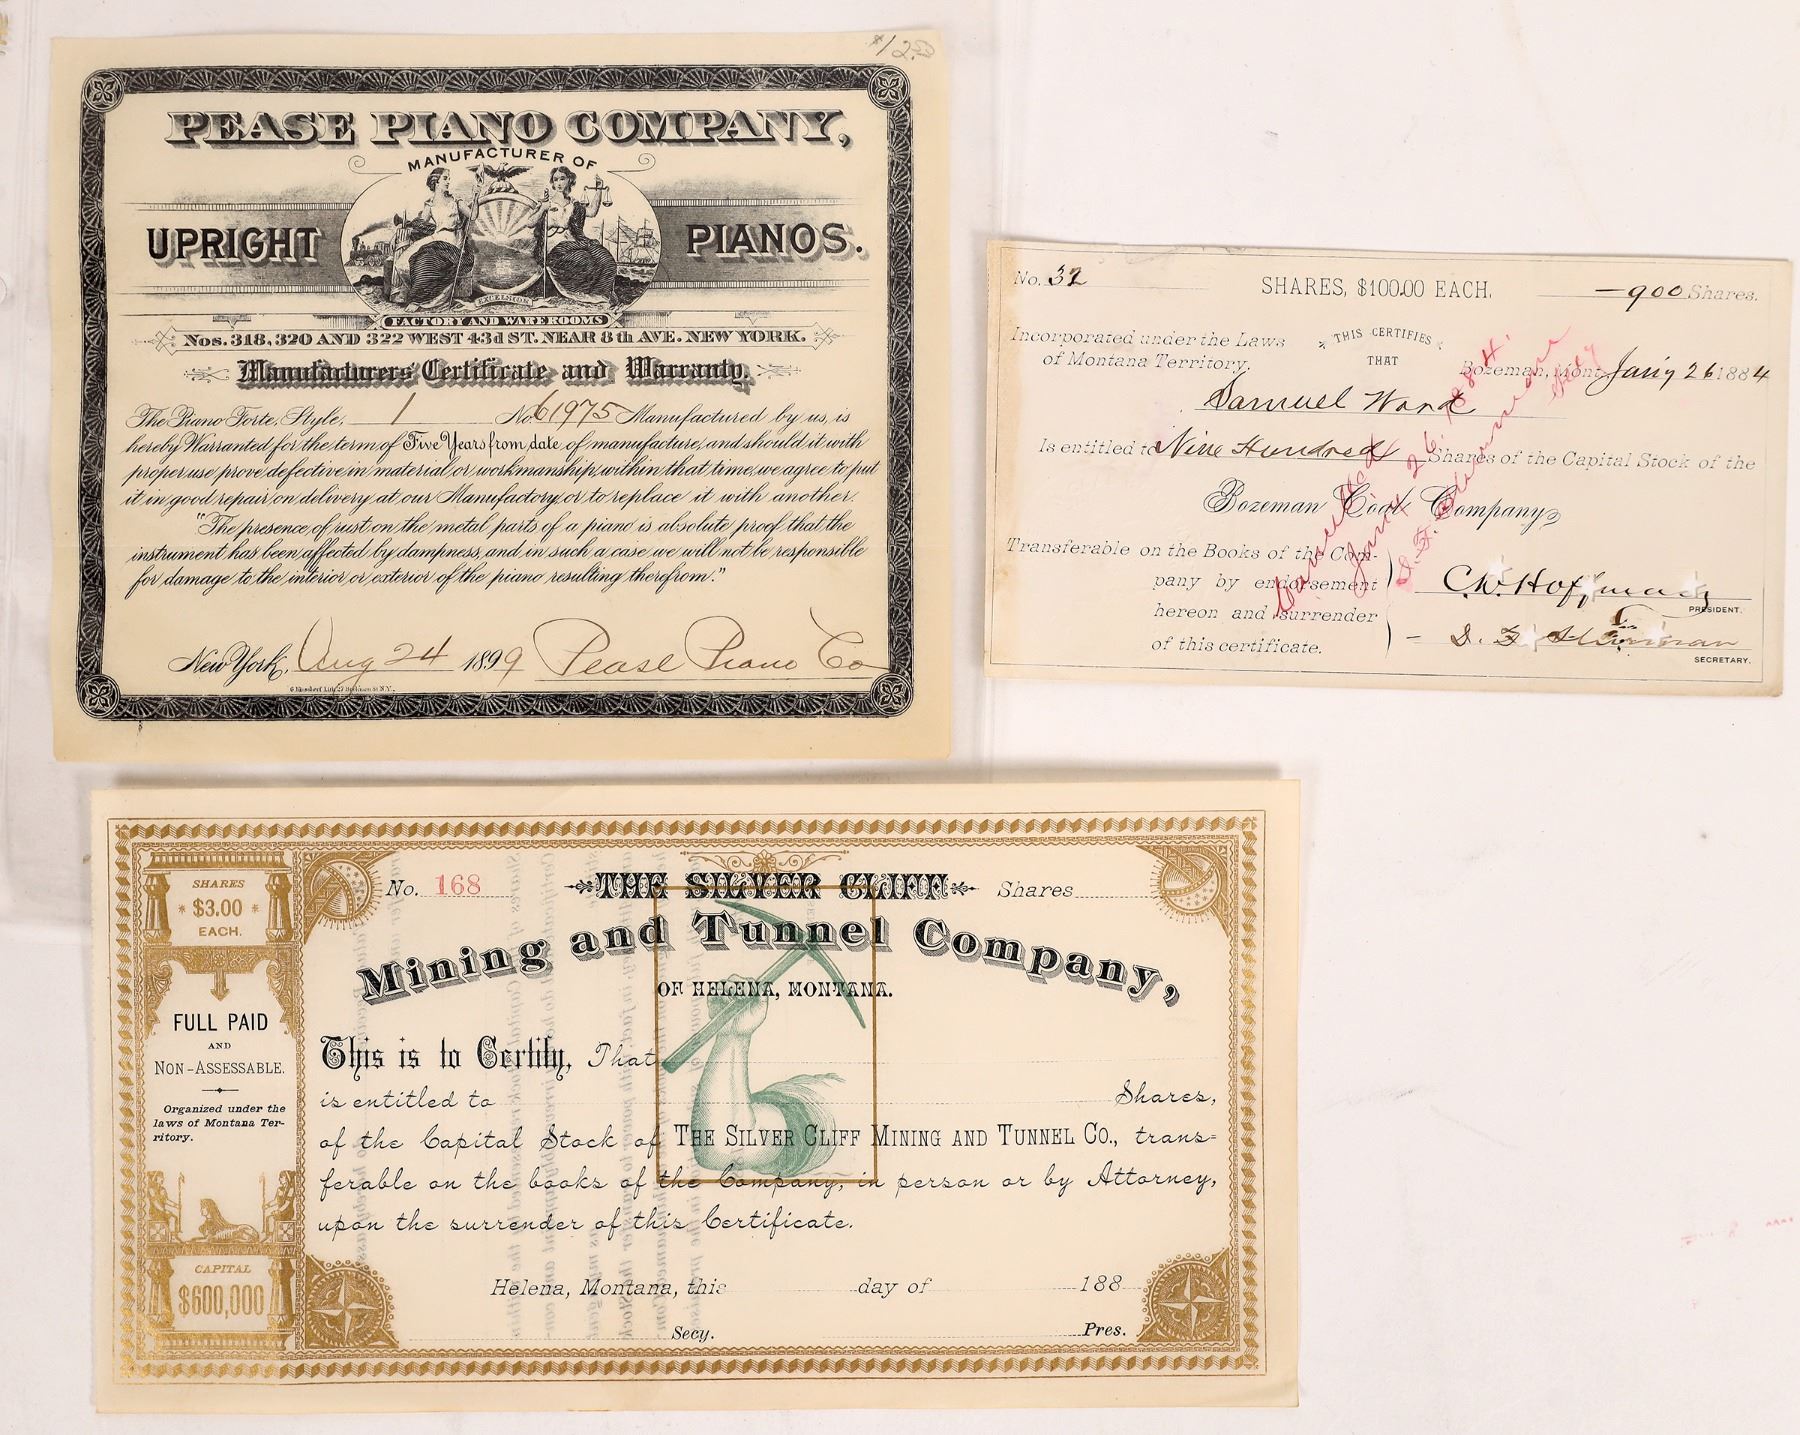 $12.50
PEASE PIANO COMPANY,
MANUFACTURER OF
UPRIGHT PIANOS.
EXCELSIOR
FACTORY AND WAREROOMS
Nos. 318, 320 AND 322 WEST 43d ST. NEAR 8th AVE. NEW YORK.
Manufacturers' Certificate and Warranty.
The Piano Forte, Style, 1 No. 61975 Manufactured by us, is
hereby Warranted for the term of Five Years from date of manufacture, and should it with
proper use prove defective in material or workmanship, within that time, we agree to put
it in good repair on delivery at our Manufactory, or to replace it with another.
"The presence of rust on the metal parts of a piano is absolute proof that the
instrument has been affected by dampness, and in such a case we will not be responsible
for damage to the interior or exterior of the piano resulting therefrom."
New York, Aug 24 1899 Pease Piano Co
No. 32 SHARES, $100.00 EACH. 900 Shares.
Incorporated under the Laws
of Montana Territory.
THIS CERTIFIES
THAT
Bozeman, Mont Jan'y 26 1884
Samuel Word
Is entitled to Nine Hundred Shares of the Capital Stock of the
Bozeman Coal Company
Transferable on the Books of the Com-
pany by endorsement
hereon and surrender
of this certificate.
C. W. Hoffman
PRESIDENT.
SECRETARY.
Cancelled
26 1884
No. 168 THE SILVER CLIFF Shares
Mining and Tunnel Company,
OF HELENA, MONTANA.
SHARES
$3.00
EACH.
FULL PAID
AND
NON-ASSESSABLE.
Organized under the
laws of Montana Ter-
ritory.
CAPITAL
$600,000
This is to Certify, That
is entitled to Shares,
of the Capital Stock of THE SILVER CLIFF MINING AND TUNNEL CO., trans-
ferable on the books of the Company, in person or by Attorney,
upon the surrender of this Certificate.
Helena, Montana, this day of 188
Secy. Pres.